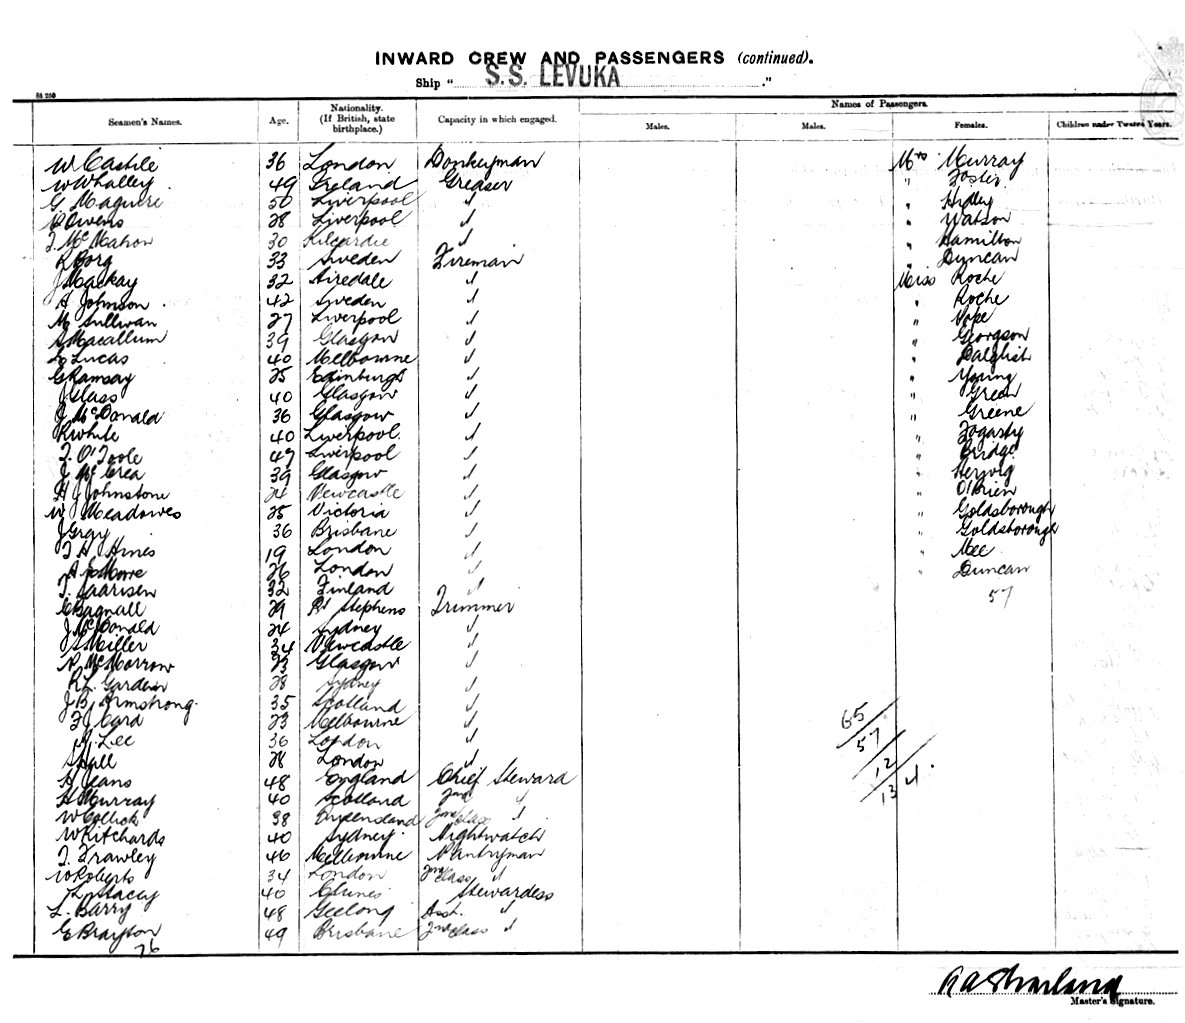 INWARD CREW AND PASSENGERS (continued).
Ship " S.S. LEVUKA "
Seamen's Names. Age. Nationality. (If British, state birthplace.) Capacity in which engaged. Names of Passengers.
Males. Males. Females. Children under Twelve Years.
W Castile 36 London Donkeyman Mrs Murray
W Whalley 49 Ireland Greaser " Foster
G Maguire 50 Liverpool √ "
Owens 28 Liverpool √ " Watson
T. McMahon 30 Kilcardie √ " Hamilton
R Borg 33 Sweden Fireman " Duncan
J Mackay 32 Airedale √ Miss Roche
A Johnson 42 Sweden √ " Roche
M Sullivan 27 Liverpool √ " Pope
S Macallum 39 Glasgow √ " Georgson
L Lucas 40 Melbourne √ " Dalglish
G Ramsay 25 Edinburgh √ " Young
J Glass 40 Glasgow √ " Green
J McDonald 36 Glasgow √ " Greene
R White 40 Liverpool √ " Fogarty
T. O'Toole 47 Liverpool √ " Bridge
J McCrea 39 Glasgow √ " Herwig
H J Johnstone 24 Newcastle √ " O'Brien
W Meadowes 25 Victoria √ " Goldsborough
J Gray 36 Brisbane √ " Goldsborough
T H Hines 19 London √ " Mee
A E Moore 26 London √ " Duncan
T. Saarisen 32 Finland √ 57
C Bagnall 29 Pt Stephens Trimmer
J McDonald 24 Sydney √
S Miller 34 Newcastle √
R McMorrow 23 Glasgow √
R L. Garden 28 Sydney √
J B. Armstrong 35 Scotland √ 65
F J Card 23 Melbourne √ 57
J. Lee 36 London √ 12
S Hall 28 London √ 134
H Jeans 48 England Chief Steward
H Murray 40 Scotland 2nd √
W Collick 38 Queensland 2nd Class √
W Ritchards 40 Sydney Nightwatch
T. Frawley 46 Melbourne Pantryman
W Roberts 34 London 2nd Class √
L Stacey 40 Clunes Stewardess
L. Barry 48 Geelong Asst. √
E Brayton 49 Brisbane 2nd Class √
76
Master's Signature.